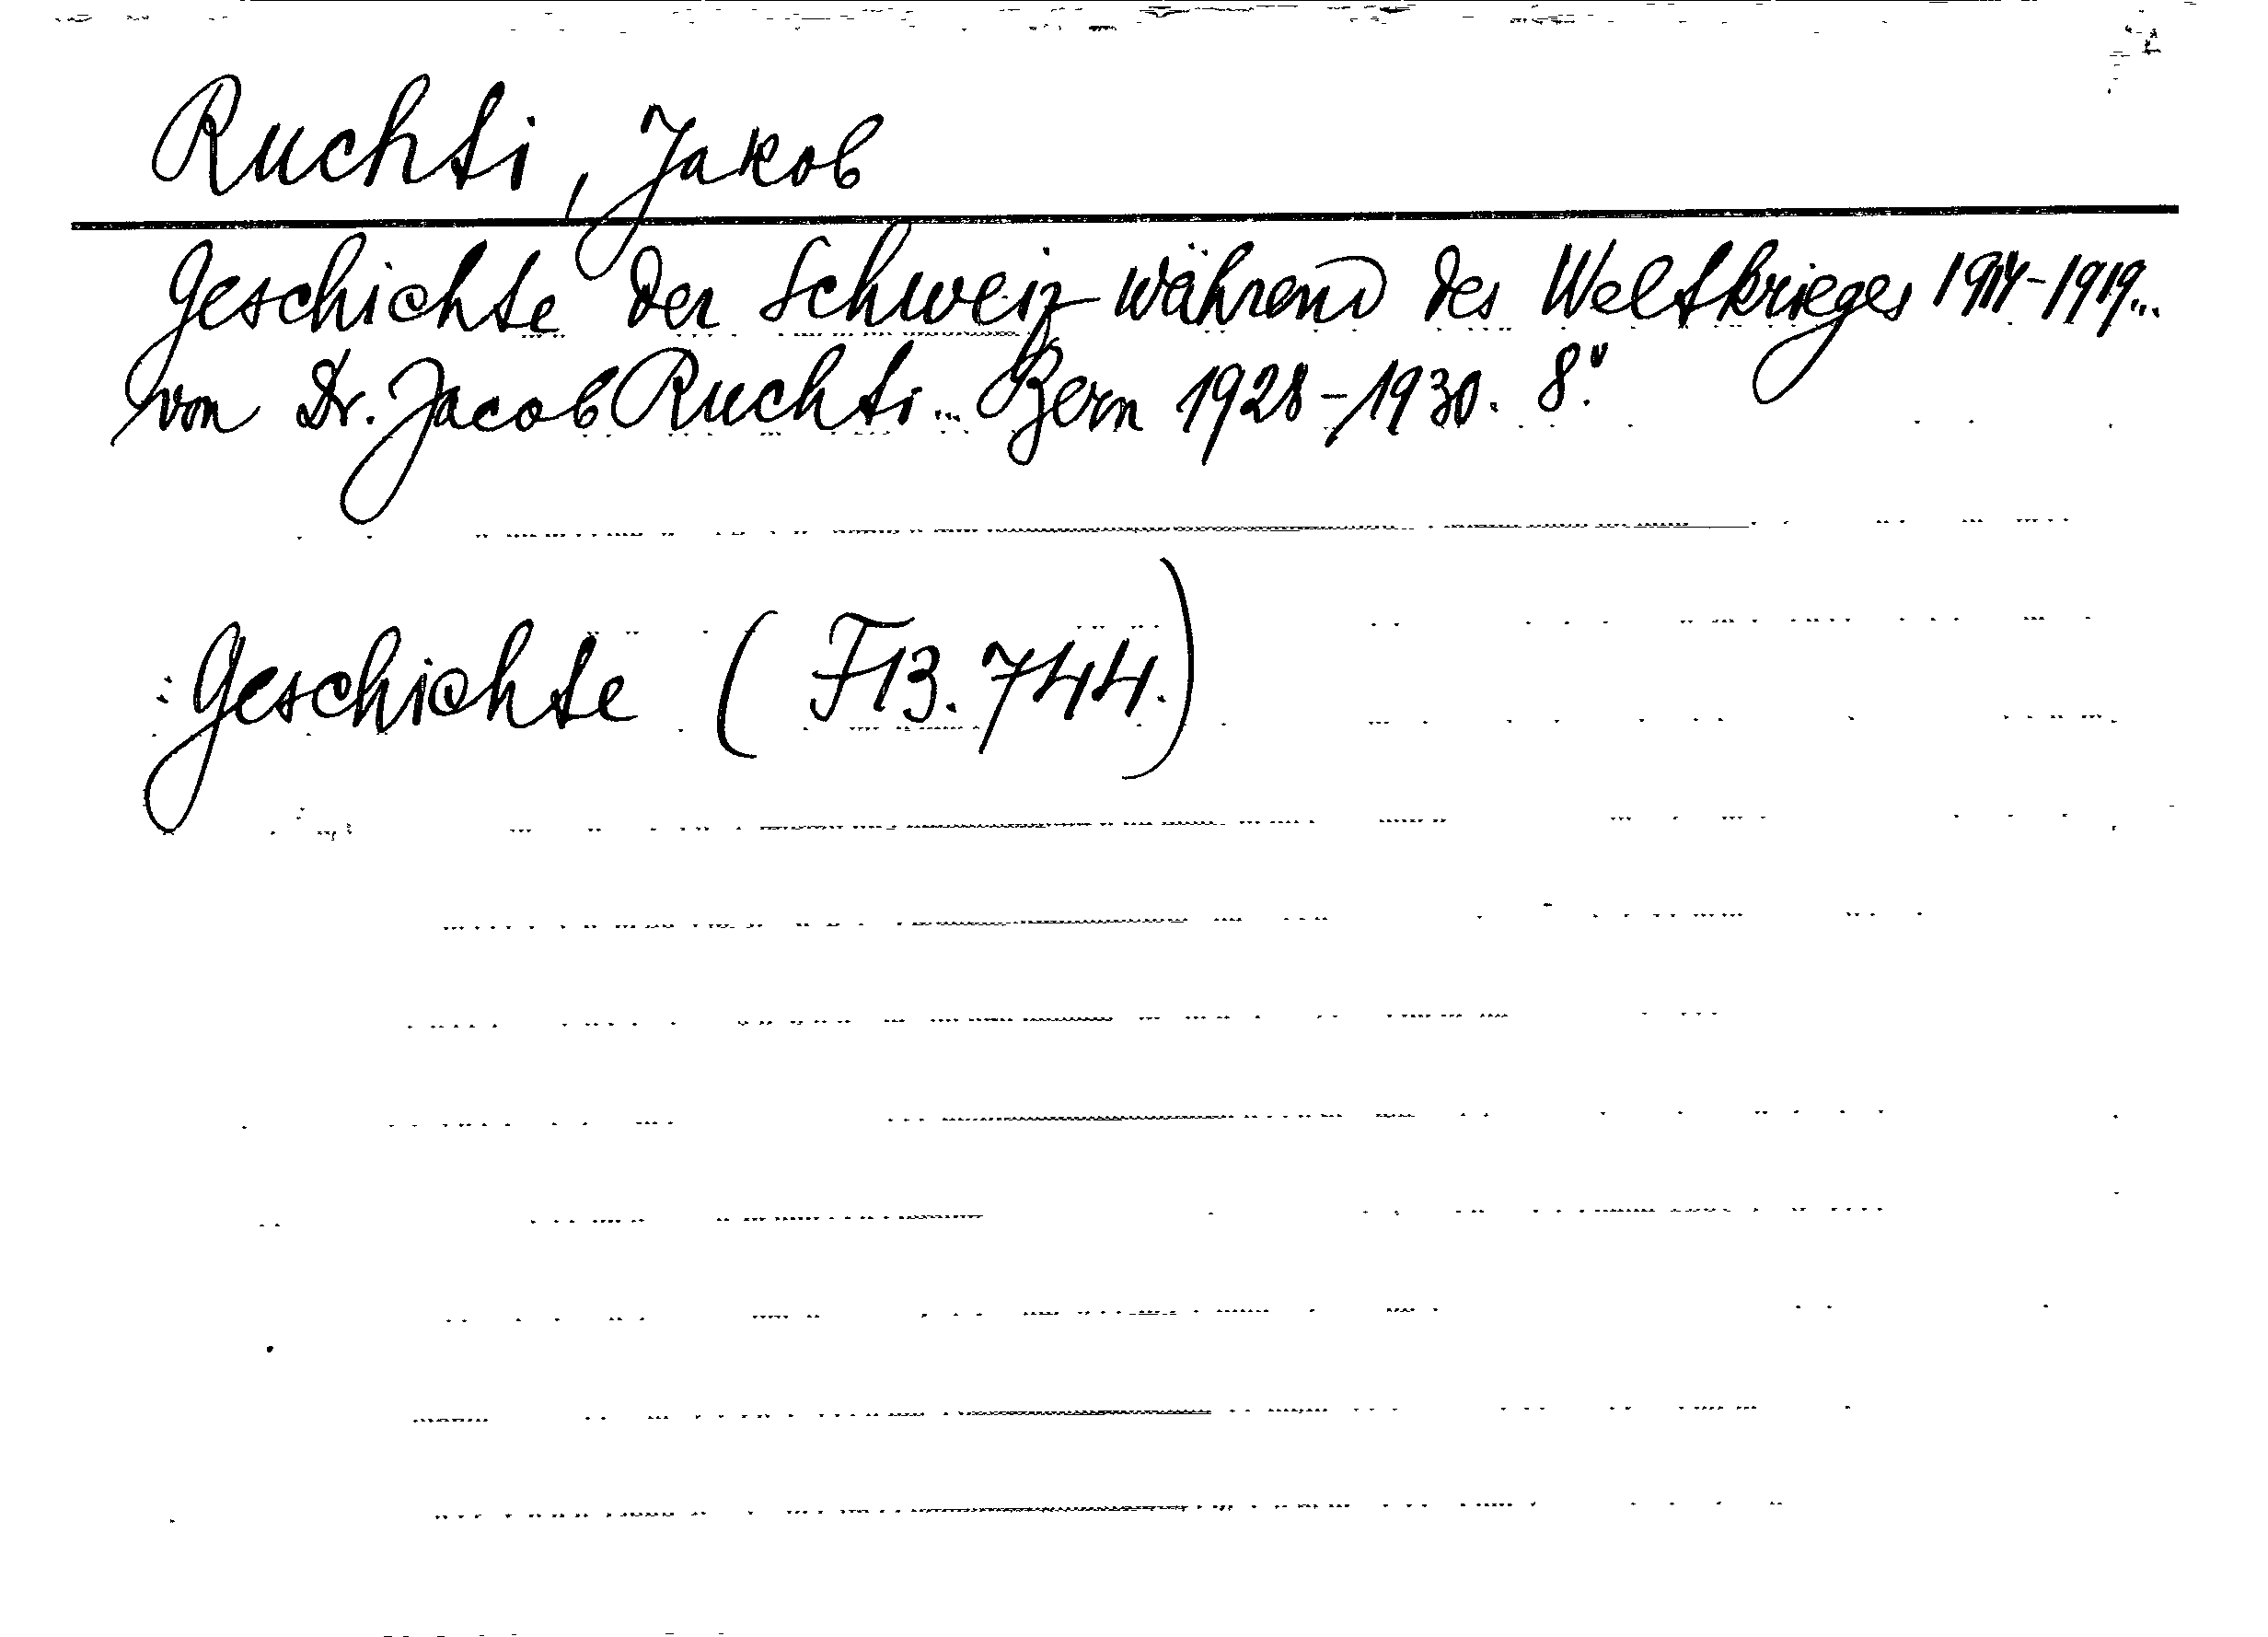 Ruchti, Jakob
Geschichte der Schweiz während des Weltkrieges 1914-1919...
von Dr. Jacob Ruchti... Bern 1928-1930. 8.º
Geschichte (F13.744.)